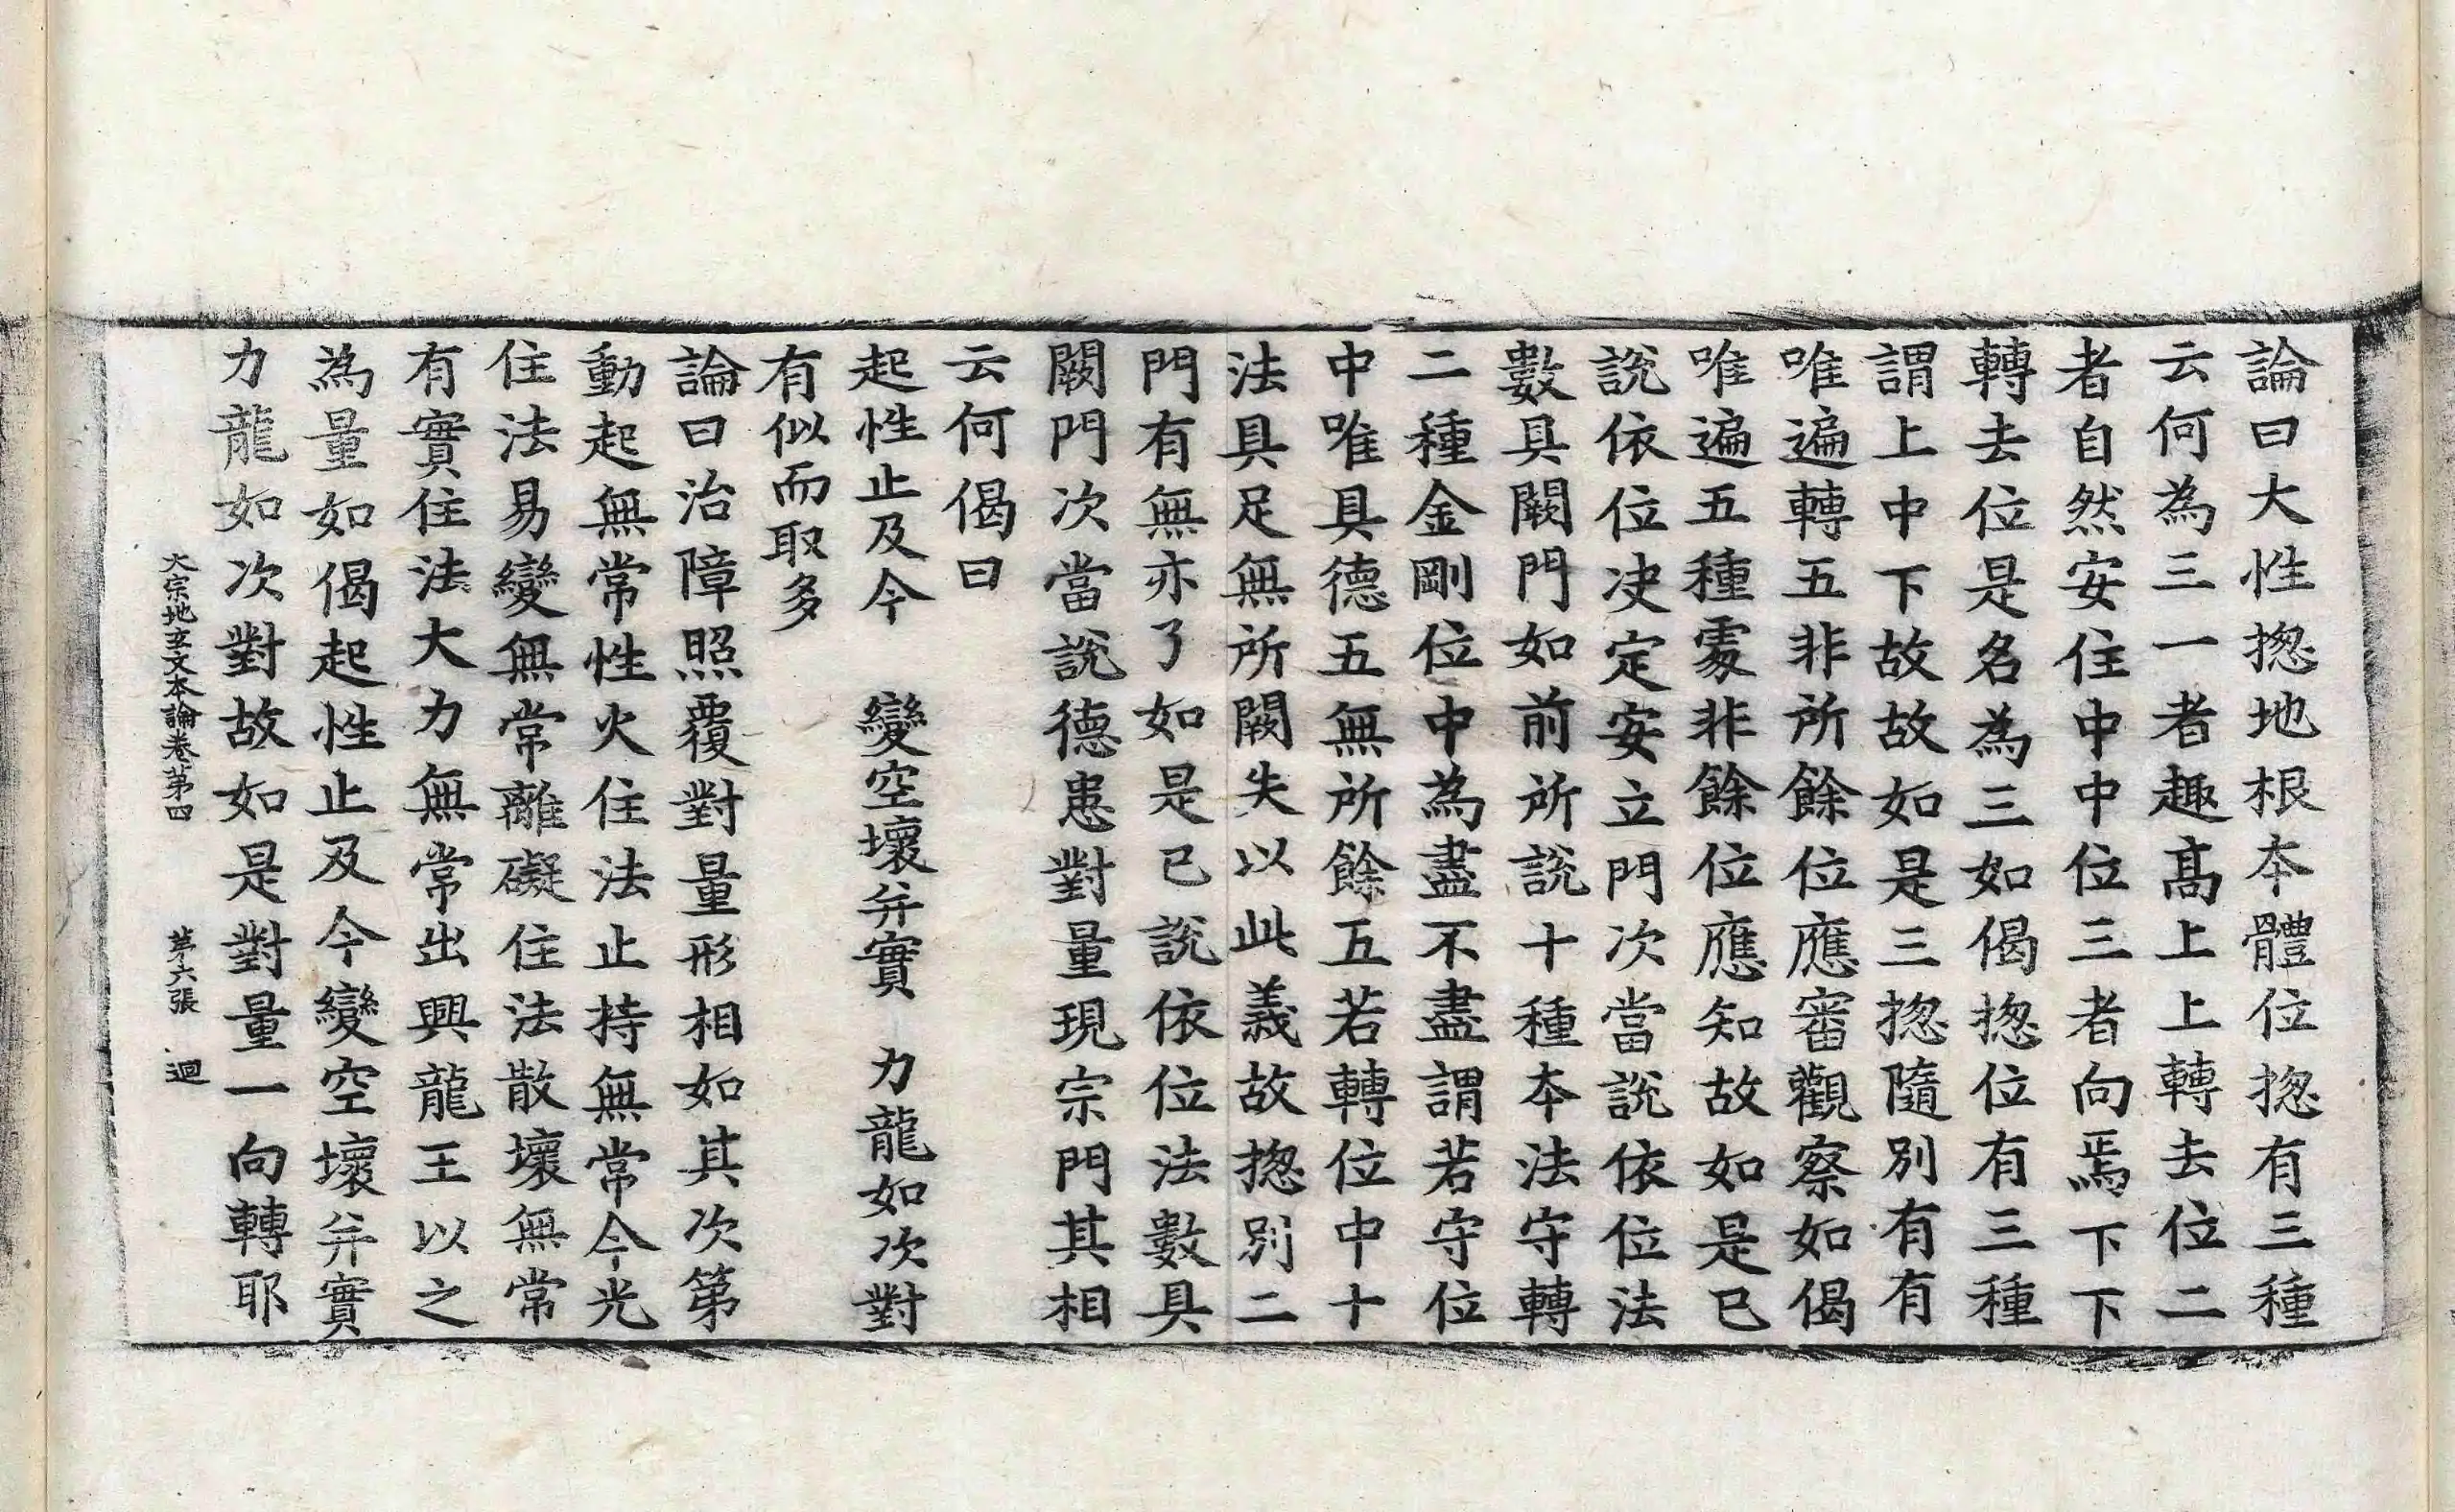 論曰大性捴地根本體位捴有三種
云何為三一者趣髙上上轉去位二
者自然安住中中位三者向焉下下
轉去位是名為三如偈捴位有三種
謂上中下故故如是三捴隨別有有
唯遍轉五非所餘位應審觀察如偈
唯遍五種䖏非餘位應知故如是已
說依位决定安立門次當說依位法
數具闕門如前所說十種本法守轉
二種金剛位中為盡不盡謂若守位
中唯具德五無所餘五若轉位中十
法具足無所闕失以此義故捴別二
門有無亦了如是已說依位法數具
闕門次當說德患對量現宗門其相
云何偈曰
起性止及今　變空壞弁實　力龍如次對
有似而取多
論曰治障照覆對量形相如其次第
動起無常性火住法止持無常今光
住法易變無常離礙住法散壞無常
有實住法大力無常出興龍王以之
為量如偈起性止及今變空壞弁實
力龍如次對故如是對量一向轉耶
大宗地玄文本論卷第四　第六張　迴